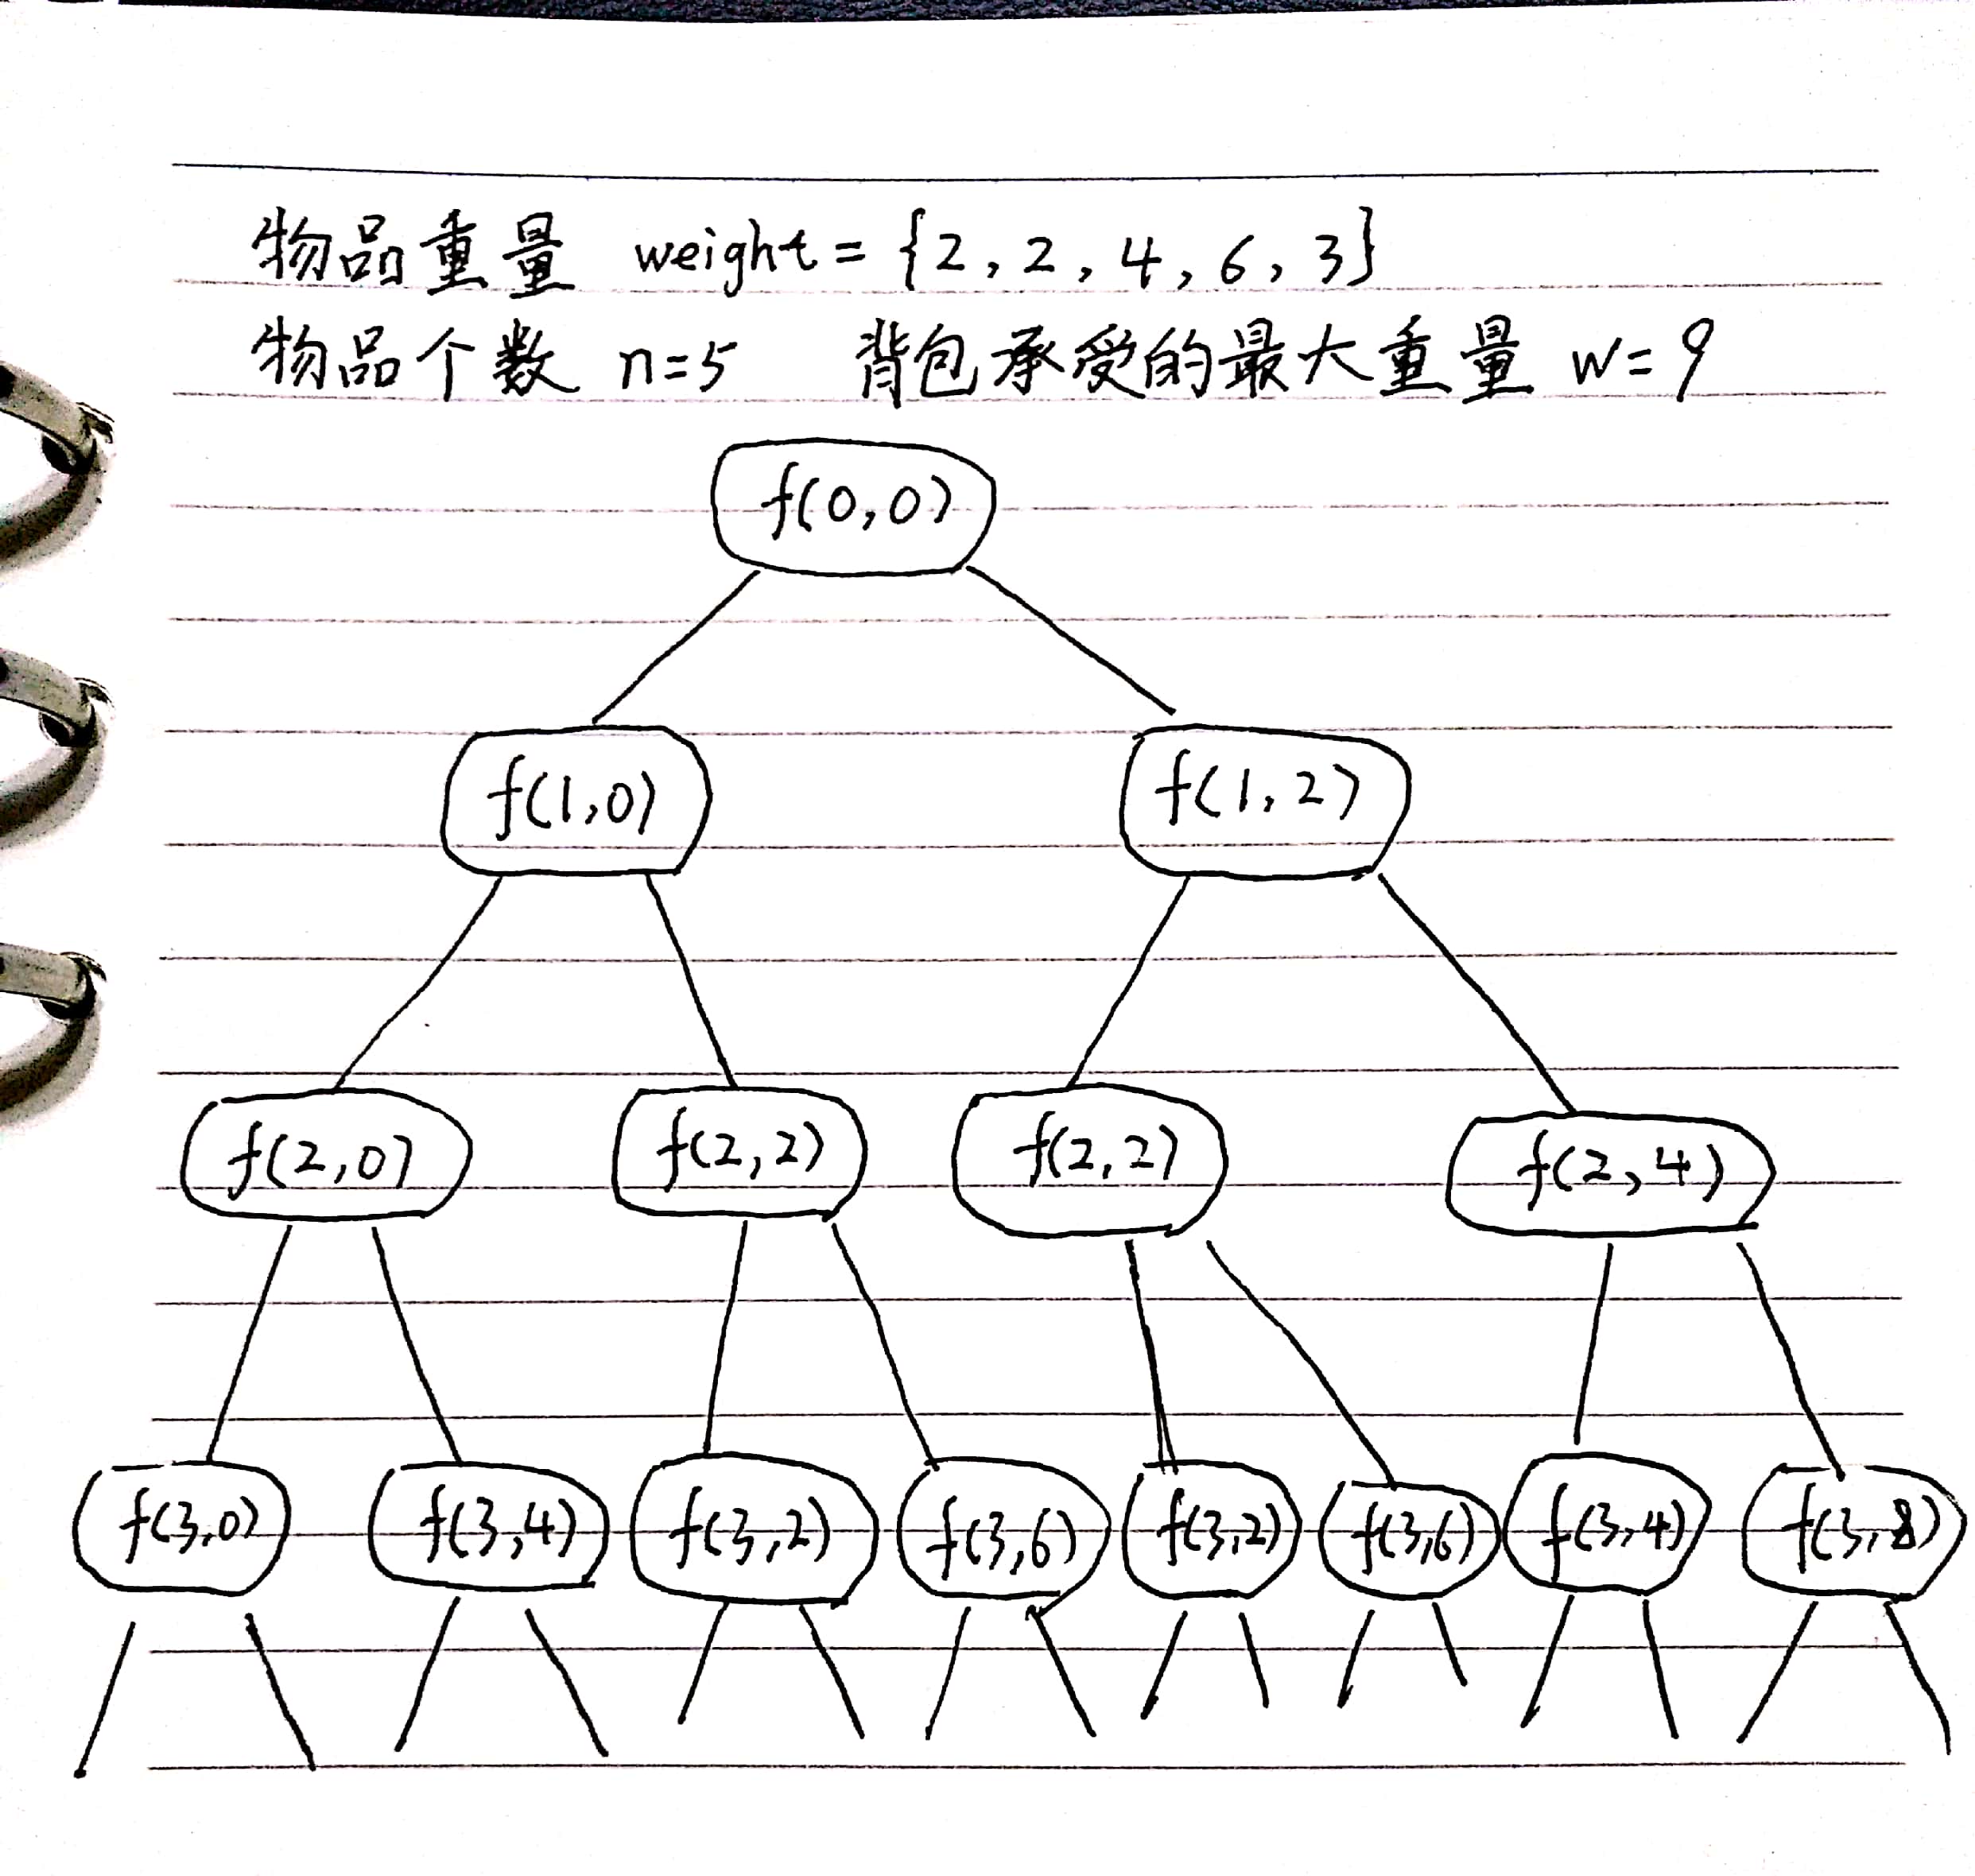 物品重量 weight = {2, 2, 4, 6, 3}
物品个数 n=5 背包承受的最大重量 w=9
f(0,0)
f(1,0) f(1,2)
f(2,0) f(2,2) f(2,2) f(2,4)
f(3,0) f(3,4) f(3,2) f(3,6) f(3,2) f(3,6) f(3,4) f(3,8)